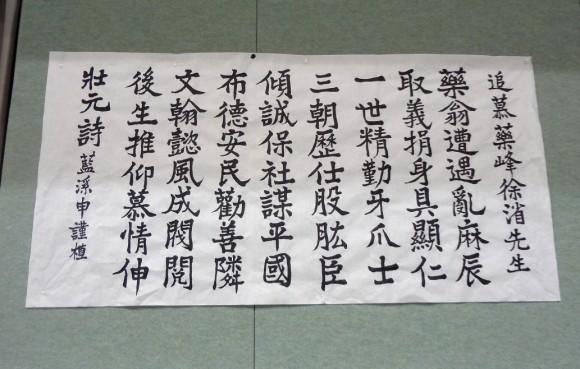 追慕藥峰徐渻先生
藥翁遭遇亂麻辰
取義捐身具顯仁
一世精勤牙爪士
三朝歷仕股肱臣
傾誠保社謀平國
布德安民勸善隣
文翰懿風成閥閱
後生推仰慕情伸
壯元詩 藍溪申謹植